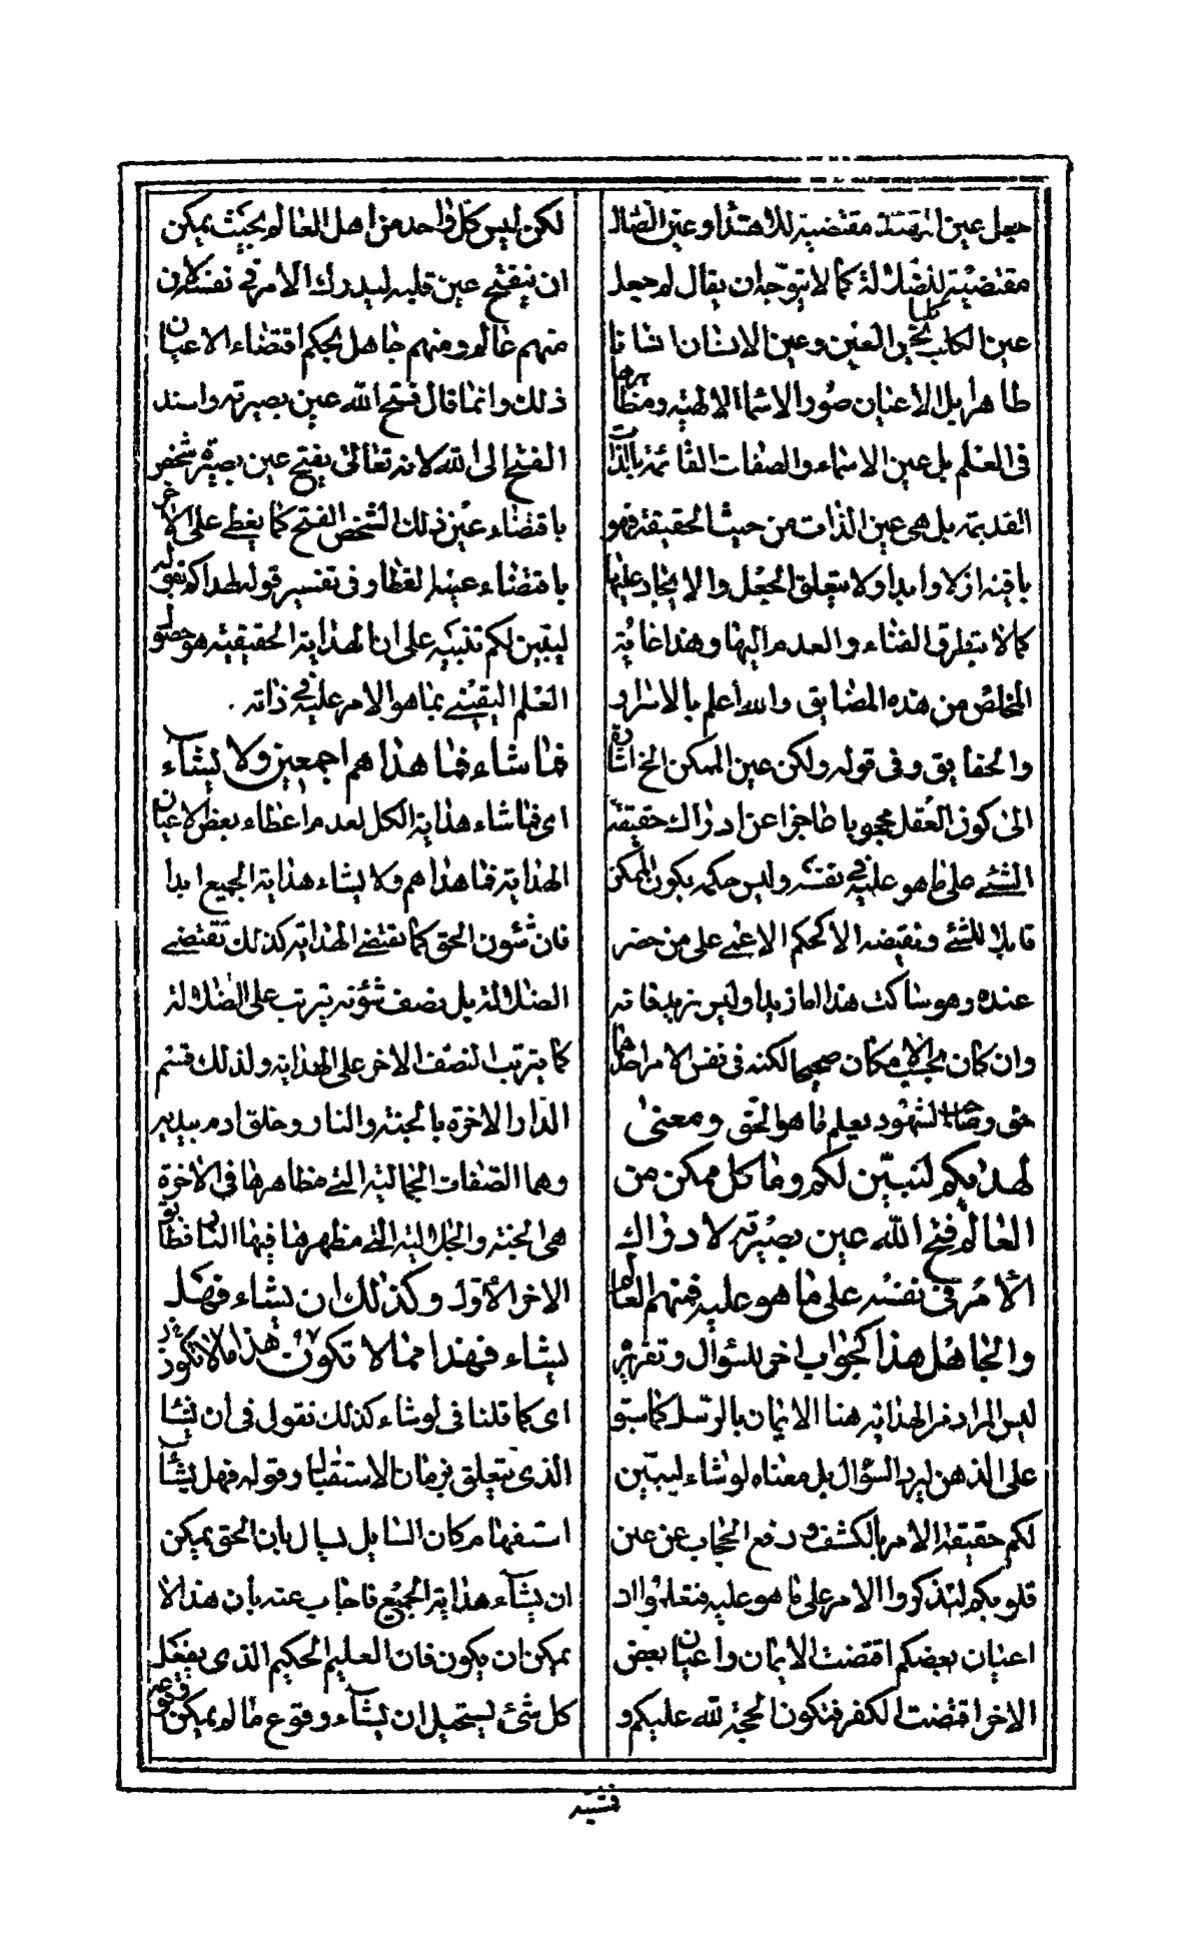 جعل عين المهتد مقتضية للاهتدا وعين الضال
مقتضية للضلالة كما لا يتوجه ان يقال لم جعل
عين الكلب كلبا نجس العين وعين الانسان انسانا
طاهرا بل الاعيان صور الاسماء الالهية ومظاهرها
فى العلم بل عين الاسماء والصفات القائمة بالذات
القديمة بل هى عين الذات من حيث الحقيقة فهو
باقية ازلا وابدا ولا يتعلق الجعل والايجاد عليها
كما لا يتطرق الفناء والعدم اليها وهذا غاية
المخلص من هذه المضايق والله اعلم بالاسرار
والحقايق وفى قوله ولكن عين الممكن الخ اشارة
الى كون العقل محجوبا عاجزا عن ادراك حقيقة
الشئ على ما هو عليه فى نفسه وليس حكمه بكون الممكن
قابلا للشئ ونقيضه الا كحكم الاعمى على من حضر
عنده وهو ساكت هذا اما زيدا وليس بزيد فانه
وان كان بحسب الامكان صحيحا لكنه فى نفس الامر احدهما
حق وصاحب الشهود يعلم ما هو الحق ومعنى
لهديكم لنبين لكم وما كل ممكن من
العالم فتح الله عين بصيرته لادراك
الامر فى نفسه على ما هو عليه فمنهم العالم
والجاهل هذا الجواب اخر للسؤال وتقريره
ليس المراد من الهداية هنا الايمان بالرسل كما سبق
على الذهن ليرد السؤال بل معناه لو شاء ليبين
لكم حقيقة الامر بالكشف ورفع الحجاب عن عين
قلوبكم لتدركوا الامر على ما هو عليه فتعلموا ان
اعيان بعضكم اقتضت الايمان واعيان بعض
الاخر اقتضت الكفر فتكون الحجة لله عليكم و
لكن ليس كل واحد من اهل العالم بحيث يمكن
ان ينفتح عين قلبه ليدرك الامر فى نفسه لان
منهم عالم ومنهم جاهل بحكم اقتضاء الاعيان
ذلك وانما قال فتح الله عين بصيرته واسند
الفتح الى الله لانه تعالى يفتح عين بصيرة شخص
باقتضاء عين ذلك الشخص الفتح كما يغطى على الاخر
باقتضاء عينه الغطا وفى تفسير قوله لهداكم بقوله
ليبين لكم تنبيه على ان الهداية الحقيقية هو حصول
العلم اليقينى بما هو الامر عليه فى ذاته .
فما شاء فما هداهم اجمعين ولا يشآء
اى فما شاء هداية الكل لعدم اعطاء بعض الاعيان
الهداية فما هداهم ولا يشاء هداية الجميع ابدا
فان شئون الحق كما تقتضى الهداية كذلك تقتضى
الضلالة بل نصف شئونه يترتب على الضلالة
كما يترتب النصف الاخر على الهداية ولذلك قسم
الدار الاخرة بالجنة والنار وخلق ادم بيديه
وهما الصفات الجمالية التى مظاهرها فى الاخرة
هى الجنة والجلالية التى مظهرها فيها النار فطابق
الاخر الاول وكذلك ان يشاء فهل
يشاء فهذا مما لا تكون هذا ما لا تكون
اى كما قلنا فى لو شاء كذلك نقول فى ان يشا
الذى يتعلق بزمان الاستقبال وقوله فهل يشآء
استفهام كان السايل يسال بان الحق يمكن
ان يشآء هداية الجميع فاجاب عنه بان هذا لا
يمكن ان يكون فان العليم الحكيم الذى يفعل
كل شئ يستحيل ان يشآء وقوع ما لم يمكن وقوعه